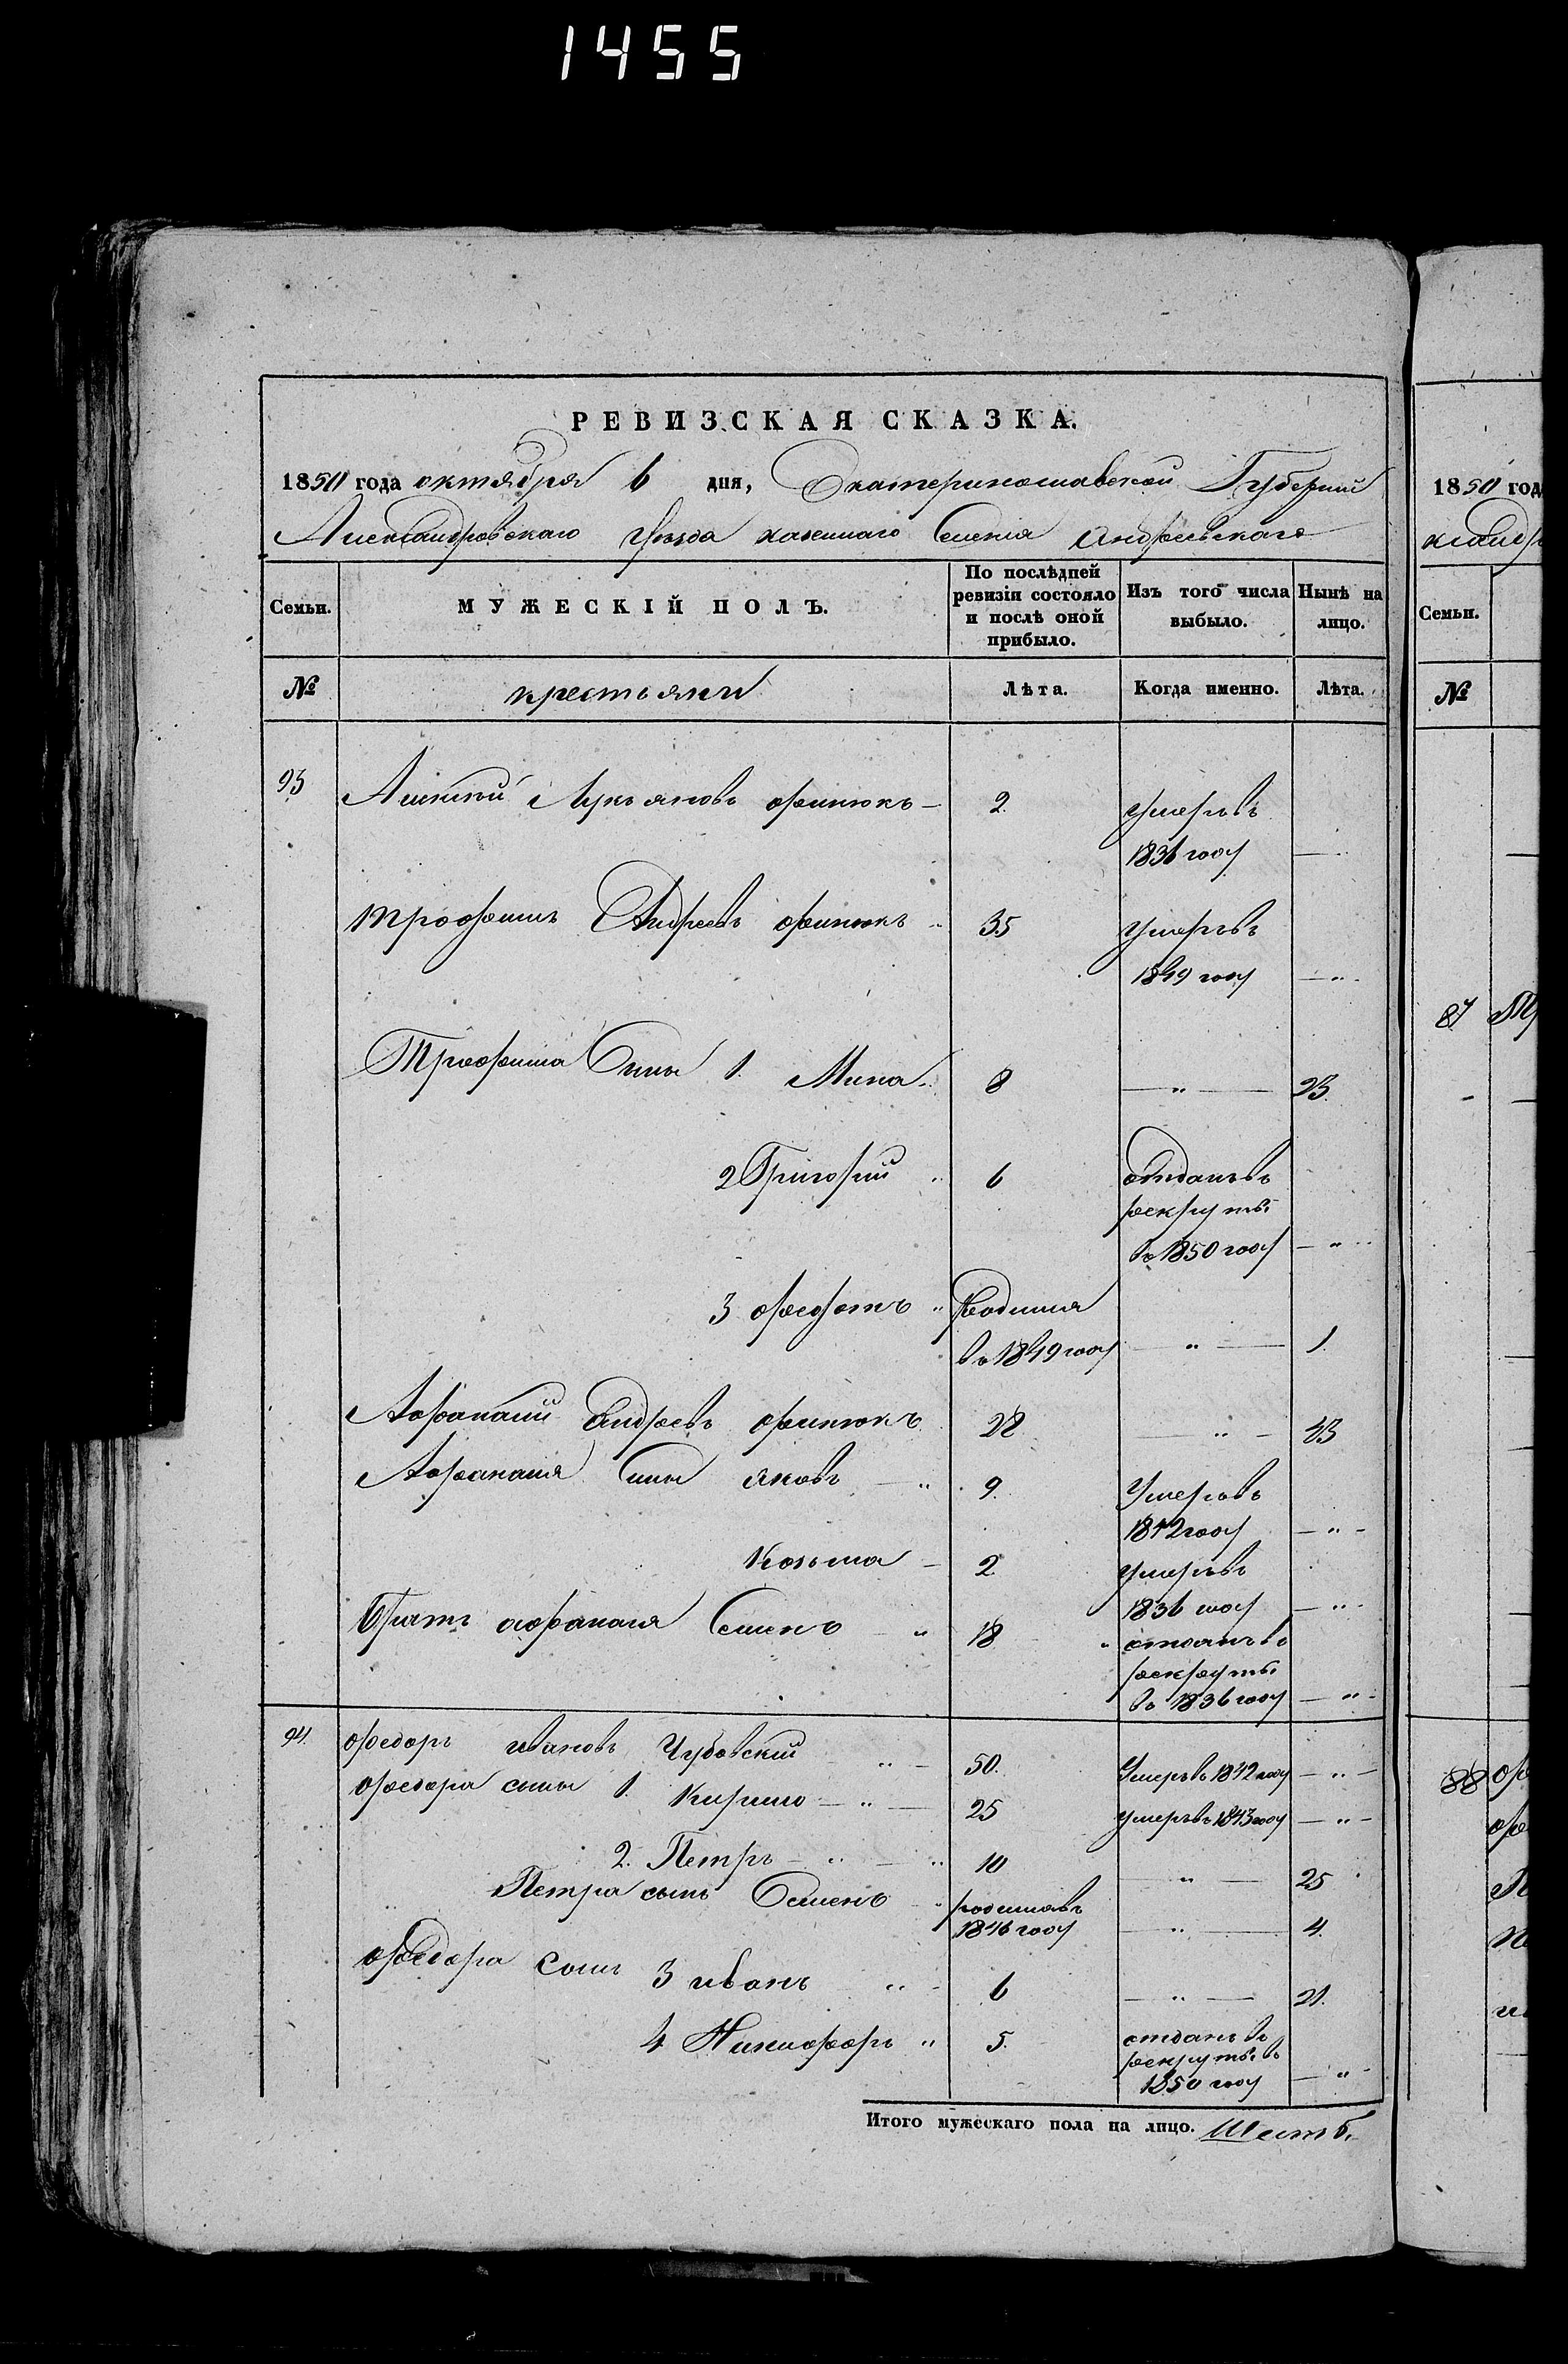 1455
РЕВИЗСКАЯ СКАЗКА.
1850 года октября 6 дня, Екатеринославской Губернии
Александровского Уезда казенного Селения Андреевского
Семьи. МУЖЕСКІЙ ПОЛЪ. По послѣдней ревизіи состояло и послѣ оной прибыло. Изъ того числа выбыло. Нынѣ на лицо.
№ крестьяни Лѣта. Когда именно. Лѣта.
93 Лукьяновъ финюкъ — 2. умеръ въ
1836 году —
трофимъ Андреевъ финюкъ „ 35 умеръ въ
1849 году — „ -
Трофима Сыны 1. Мина „ 8 — „ — 23.
2 Григорий „ 6 отданъ въ
рекруты
въ 1850 году — „
3 федотъ „ Родился
въ 1849 году — „ — 1.
Афанасий Андреевъ финюкъ 28 — „ — 43
Афанасия Сыны яковъ — „ 9. Умеръ въ
1842 году — „ -
Козьма — 2. умеръ въ
1836 году — „ -
Братъ афанасия Семенъ — „ 18 отданъ въ
рекруты
въ 1836 году — „ -
94. федоръ ивановъ Чубовский „ — 50. Умеръ въ 1842 году — „ —
федора сыны 1. Кирило — „ — 25 умеръ въ 1843 году — „ —
2. Петръ — „ — „ 10 — „ — 25
Петра сынъ Семенъ — „ родился въ
1846 году — „ — 4.
федора Сынъ 3 иванъ „ - 6 — „ — 21.
4 Никифоръ „ 5. отданъ въ
рекруты въ
1850 году — „
Итого мужескаго пола на лицо. Шесть.
1850 год
Семьи.
№
87
88